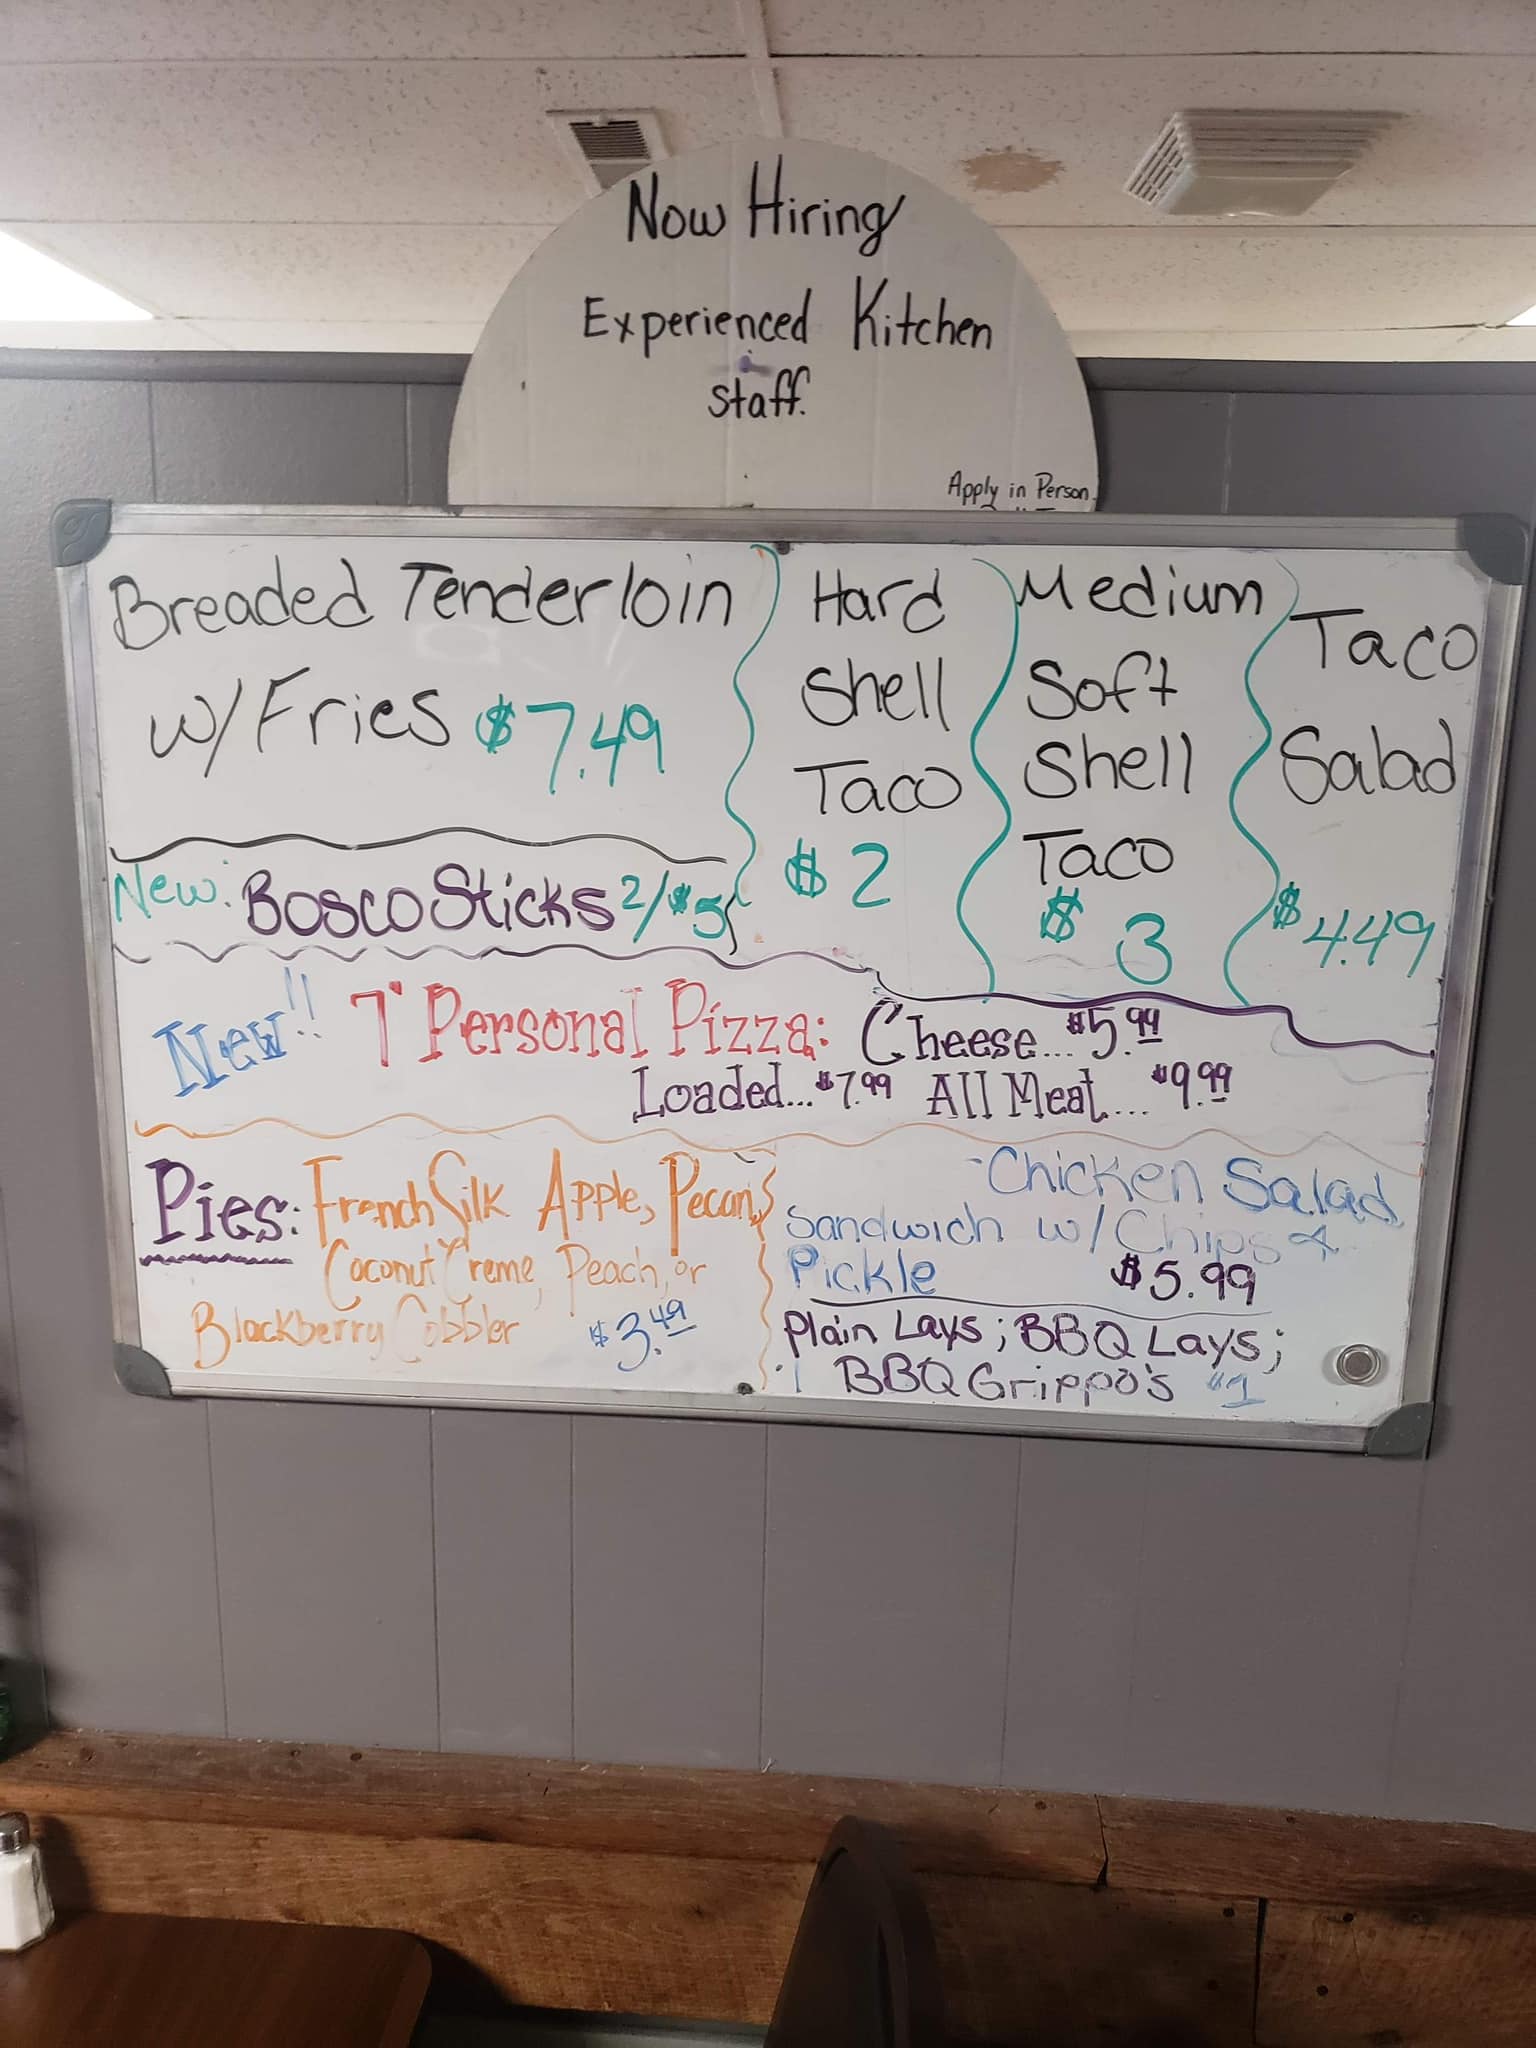 Now Hiring
Experienced Kitchen
staff.
Apply in Person.
Breaded Tenderloin
w/Fries $7.49
Hard
Shell
Taco
$2
Medium
Soft
Shell
Taco
$3
Taco
Salad
$4.49
New: Bosco Sticks 2/$5
New!! 7" Personal Pizza: Cheese...$5.99
Loaded...$7.99 All Meat....$9.99
Pies: French Silk Apple, Pecan,
Coconut Creme, Peach, or
Blackberry Cobbler $3.49
Chicken Salad
Sandwich w/Chips &
Pickle $5.99
Plain Lays; BBQ Lays;
BBQ Grippo's $1